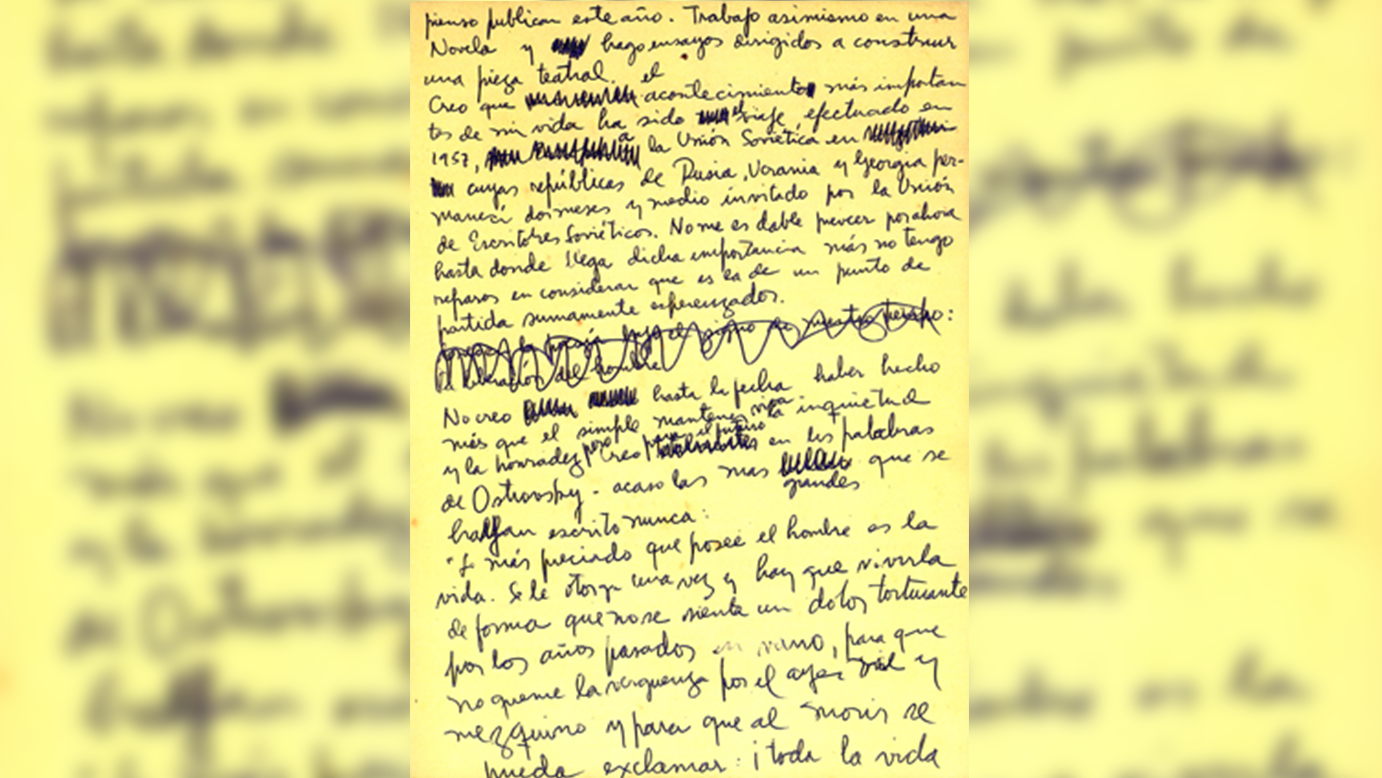 pienso publicar este año. Trabajo asimismo en una
Novela y hago ensayos dirigidos a construir
una pieza teatral. el
Creo que acontecimiento más importan
tes de mi vida ha sido el viaje, efectuado en
1957, a la Unión Soviética en
cuyas repúblicas de Rusia, Ucrania y Georgia per-
manecí dos meses y medio invitado por la Unión
de Escritores Soviéticos. No me es dable preveer por ahora
hasta donde llega dicha importancia más no tengo
reparos en considerar que es la de un punto de
partida sumamente esperanzador.
bajo el signo de nuestro tiempo:
No creo hasta la fecha haber hecho
más que el simple mantener viva la inquietud
y la honradez pero creo para el futuro en las palabras
de Ostrovsky - acaso las mas que se
grandes
hallan escrito nunca:
"Lo más preciado que posee el hombre es la
vida. Se le otorga una vez y hay que vivirla
de forma que no se sienta un dolor torturante
por los años pasados en vano, para que
no queme la verguenza por el ayer vil y
mezquino y para que al morir se
pueda exclamar: ¡toda la vida